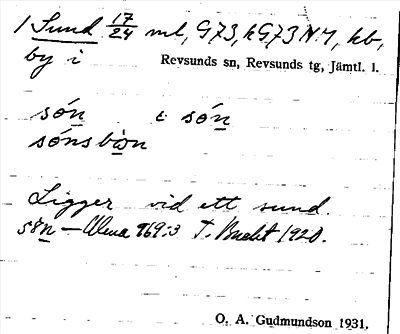 1 Sund 17/24 ml, G73, kG73 N.M, kb,
by i Revsunds sn, Revsunds tg, Jämtl. l.
són i són
sónsbòn
Ligger vid ett sund.
s8n — 969:3 T. 1920.
O. A. Gudmundson 1931.